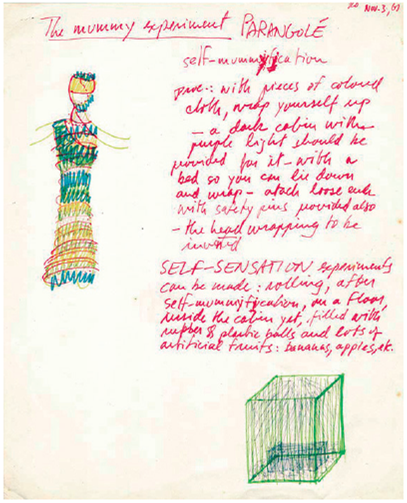 Nov. 3,
The mummy experiment PARANGOLÉ
self-mummyfication
with pieces of colored
cloth, wrap yourself up
– a dark cabin with
purple light should be
provided for it – with a
bed so you can lie down
and wrap – atach loose ends
with safety pins provided also
– the head wrapping to be
SELF-SENSATION experiments
can be made: rolling, after
self-mummyfication, on a floor,
inside the cabin yet, filled with
rubber & plastic balls and lots of
artificial fruits: bananas, apples, etc.